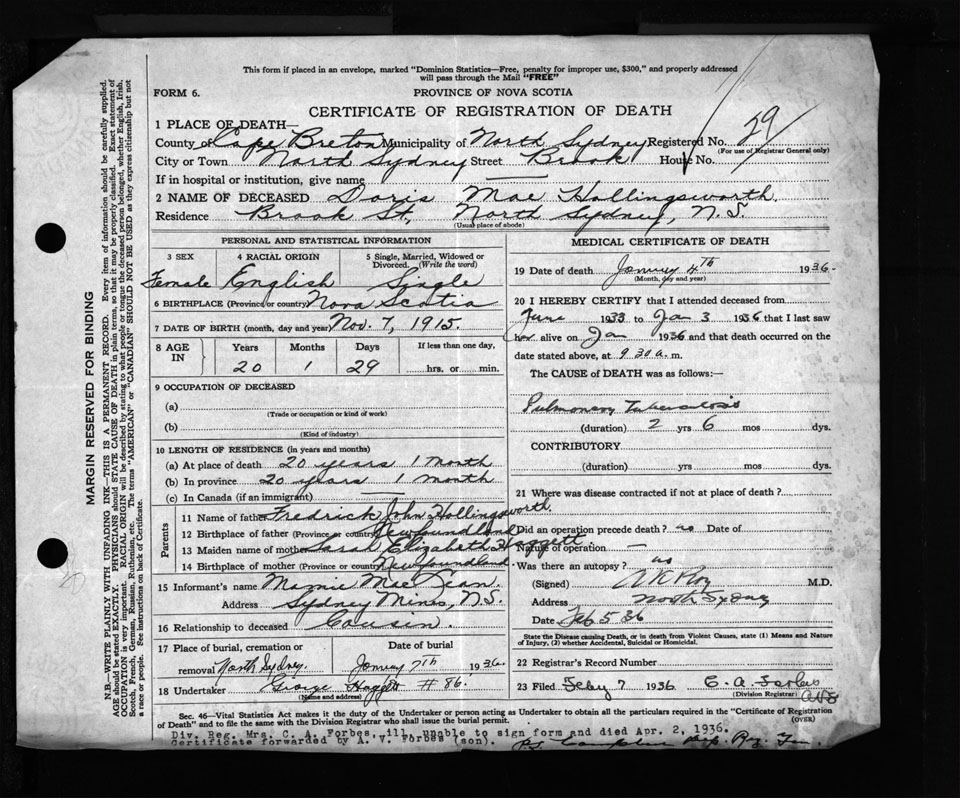 This form if placed in an envelope, marked "Dominion Statistics—Free, penalty for improper use, $300," and properly addressed
will pass through the Mail "FREE"
FORM 6.
PROVINCE OF NOVA SCOTIA
CERTIFICATE OF REGISTRATION OF DEATH
1 PLACE OF DEATH—
County of Cape Breton Municipality of North Sydney Registered No. 29
(For use of Registrar General only)
City or Town North Sydney Street Brook House No.
If in hospital or institution, give name
2 NAME OF DECEASED Doris Mae Hollingsworth.
Residence Brook St, North Sydney, N.S.
(Usual place of abode)
PERSONAL AND STATISTICAL INFORMATION
3 SEX
4 RACIAL ORIGIN
5 Single, Married, Widowed or
Divorced. (Write the word)
Female English Single
6 BIRTHPLACE (Province or country) Nova Scotia
7 DATE OF BIRTH (month, day and year) Nov. 7, 1915.
8 AGE IN
Years Months Days If less than one day,
20 1 29 hrs. or min.
9 OCCUPATION OF DECEASED
(a)
(Trade or occupation or kind of work)
(b)
(Kind of industry)
10 LENGTH OF RESIDENCE (in years and months)
(a) At place of death 20 years 1 month
(b) In province 20 years 1 month
(c) In Canada (if an immigrant)
Parents
11 Name of father Fredrick John Hollingsworth.
12 Birthplace of father (Province or country) Newfoundland
13 Maiden name of mother Sarah Elizabeth Haggett
14 Birthplace of mother (Province or country) Newfoundland.
15 Informant's name Mamie Mae Dean.
Address Sydney Mines, N.S.
16 Relationship to deceased Cousin.
17 Place of burial, cremation or
removal North Sydney.
Date of burial
January 7th 1936
18 Undertaker George Haggett #86.
(Name and address)
MEDICAL CERTIFICATE OF DEATH
19 Date of death January 4th 1936
(Month, day and year)
20 I HEREBY CERTIFY that I attended deceased from
June 1933 to Jan 3 1936 that I last saw
her alive on Jan 1936 and that death occurred on the
date stated above, at 9.30 a. m.
The CAUSE of DEATH was as follows:—
Pulmonary Tuberculosis
(duration) 2 yrs 6 mos dys.
CONTRIBUTORY
(duration) yrs. mos dys.
21 Where was disease contracted if not at place of death?
Did an operation precede death? no Date of
Nature of operation —
Was there an autopsy? no
(Signed) M.D.
Address North Sydney
Date Feb 5 36
State the Disease causing Death, or in death from Violent Causes, state (1) Means and Nature
of Injury, (2) whether Accidental, Suicidal or Homicidal.
22 Registrar's Record Number
23 Filed Feby 7 1936 C. A. Forbes
(Division Registrar)
Sec. 46—Vital Statistics Act makes it the duty of the Undertaker or person acting as Undertaker to obtain all the particulars required in the "Certificate of Registration
of Death" and to file the same with the Division Registrar who shall issue the burial permit.
(OVER)
Div. Reg. Mrs. C. A. Forbes, ill, unable to sign form and died Apr. 2, 1936.
Certificate forwarded by A. V. Forbes (son).
MARGIN RESERVED FOR BINDING
N.B.—WRITE PLAINLY WITH UNFADING INK—THIS IS A PERMANENT RECORD. Every item of information should be carefully supplied.
AGE should be stated EXACTLY. PHYSICIANS should STATE CAUSE OF DEATH in plain terms, so that it may be properly classified. Exact statement of
OCCUPATION is very important. RACIAL ORIGIN will be described by stating to what people or tongue the deceased person belonged, whether English, Irish,
Scotch, French, German, Russian, Ruthenian, etc. The terms "AMERICAN" or "CANADIAN" SHOULD NOT BE USED as they express citizenship but not
a race or people. See instructions on back of Certificate.